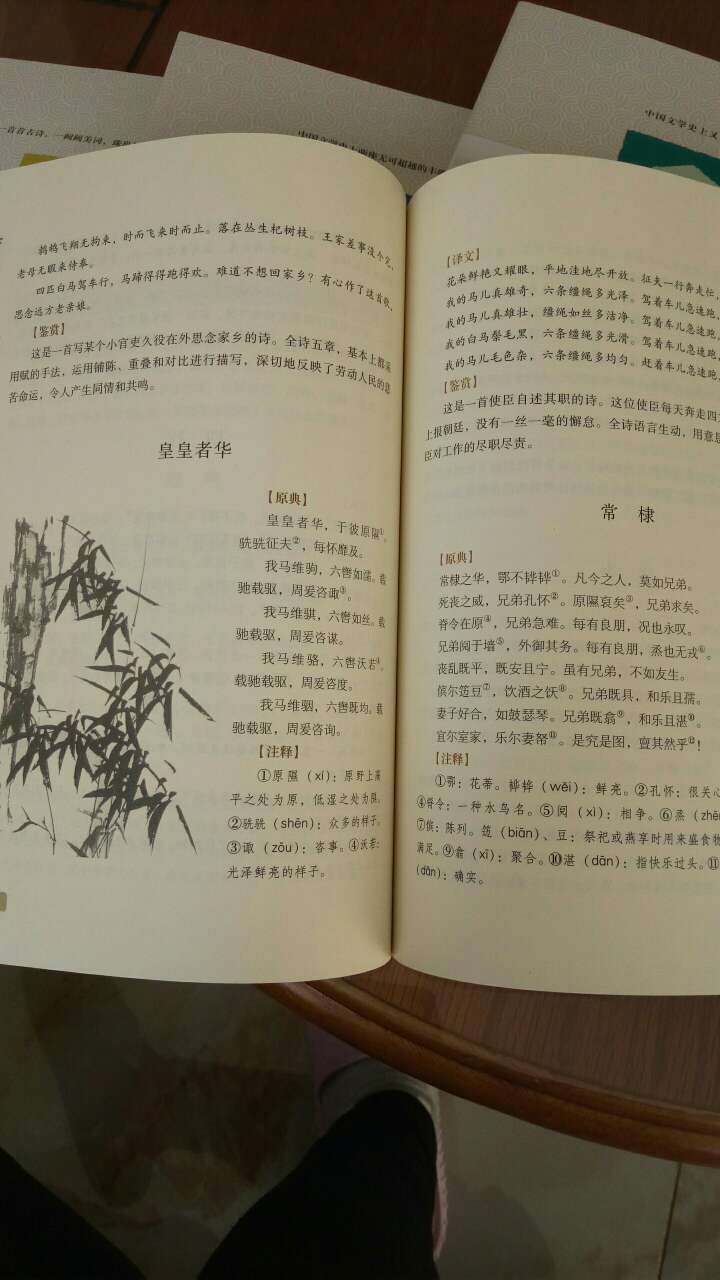 一首首古诗,一阙阙美词,
中国文学史上一座座无可超越的丰
中国文学史上又
鹁鸪飞翔无拘束,时而飞来时而止。落在丛生杞树枝。王家差事没个完,
老母无暇来侍奉。
四匹白马驾车行,马蹄得得跑得欢。难道不想回家乡?有心作了这首歌,
思念远方老亲娘。
【鉴赏】
这是一首写某个小官吏久役在外思念家乡的诗。全诗五章,基本上都采
用赋的手法,运用铺陈、重叠和对比进行描写,深切地反映了劳动人民的悲
苦命运,令人产生同情和共鸣。
皇皇者华
【原典】
皇皇者华,于彼原隰①。
駪駪征夫②,每怀靡及。
我马维驹,六辔如濡。载
驰载驱,周爰咨诹③。
我马维骐,六辔如丝。载
驰载驱,周爰咨谋。
我马维骆,六辔沃若④。
载驰载驱,周爰咨度。
我马维骃,六辔既均。载
驰载驱,周爰咨询。
【注释】
①原隰(xí):原野上高
平之处为原,低湿之处为隰。
②駪駪(shēn):众多的样子。
③诹(zōu):咨事。④沃若:
光泽鲜亮的样子。
【译文】
花朵鲜艳又耀眼,平地洼地尽开放。征夫一行奔走忙,
我的马儿真雄奇,六条缰绳多光泽。驾着车儿急速跑,
我的马儿真雄壮,缰绳如丝多洁净。驾着车儿急速跑,
我的白马鬃毛黑,六条缰绳多光滑。驾着车儿急速跑,
我的马儿毛色杂,六条缰绳多均匀。赶着车儿急速跑,
【鉴赏】
这是一首使臣自述其职的诗。这位使臣每天奔走四
上报朝廷,没有一丝一毫的懈怠。全诗语言生动,用意
臣对工作的尽职尽责。
常棣
【原典】
常棣之华,鄂不韡韡①。凡今之人,莫如兄弟。
死丧之威,兄弟孔怀②。原隰裒矣③,兄弟求矣。
脊令在原④,兄弟急难。每有良朋,况也永叹。
兄弟阋于墙⑤,外御其务。每有良朋,烝也无戎⑥。
丧乱既平,既安且宁。虽有兄弟,不如友生。
傧尔笾豆⑦,饮酒之饫⑧。兄弟既具,和乐且孺。
妻子好合,如鼓瑟琴。兄弟既翕⑨,和乐且湛⑩。
宜尔室家,乐尔妻帑⑪。是究是图,亶其然乎⑫!
【注释】
①鄂:花蒂。韡韡(wěi):鲜亮。②孔怀:很关心
④脊令:一种水鸟名。⑤阋(xì):相争。⑥烝(zhē
⑦傧:陈列。笾(biān)、豆:祭祀或燕享时用来盛食物
满足。⑨翕(xī):聚合。⑩湛(dān):指快乐过头。⑪
(dǎn):确实。